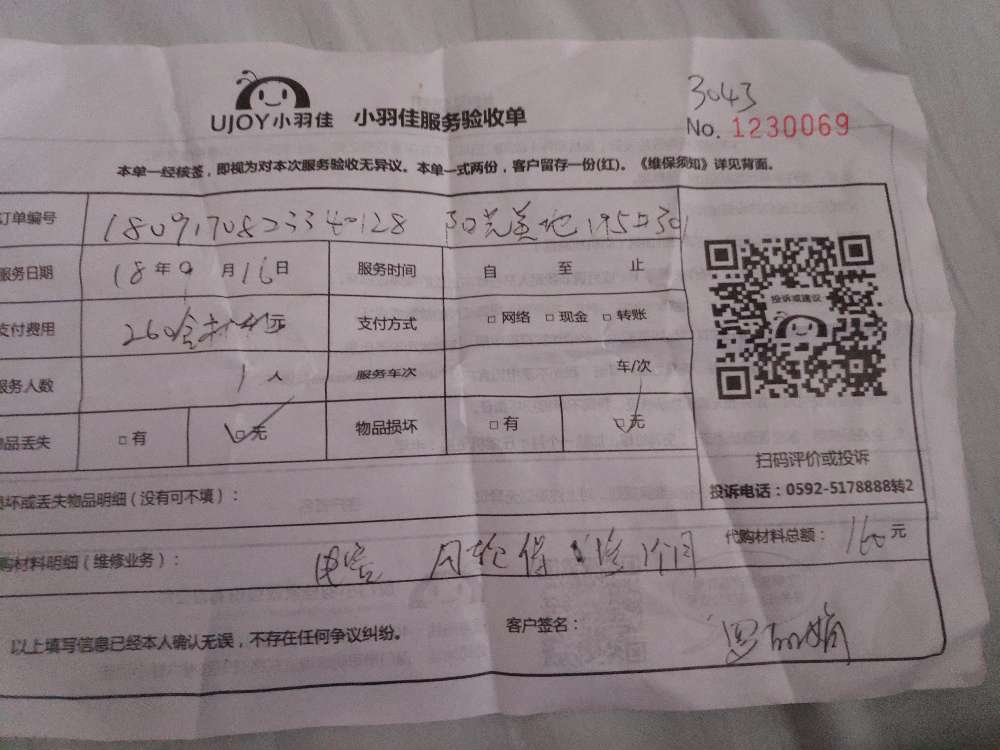 3043
UJOY小羽佳 小羽佳服务验收单
No. 1230069
本单一经核签，即视为对本次服务验收无异议。本单一式两份，客户留存一份(红)。《维保须知》详见背面。
订单编号
服务日期 18年9月16日 服务时间 自 至 止
支付费用 260含材料 元 支付方式 □网络 □现金 □转账
服务人数 1人 服务车次 车/次
物品丢失 □有 □无 物品损坏 □有 □无
投诉或建议
扫码评价或投诉
投诉电话：0592-5178888转2
损坏或丢失物品明细（没有可不填）：
代购材料明细（维修业务）： 电容 代购材料总额：160元
以上填写信息已经本人确认无误，不存在任何争议纠纷。 客户签名：